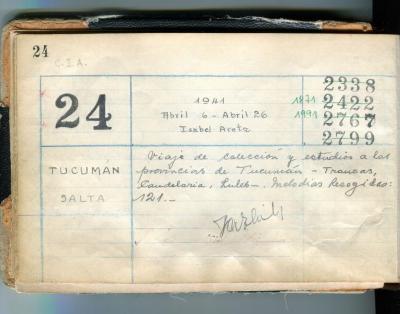 24
C.I.A.
24
1941
Abril 6 - Abril 26
Isabel Aretz
1871
1991
2338
2422
2767
2799
TUCUMÁN
SALTA
Viaje de colección y estudios a las
provincias de Tucumán - Trancas,
Candelaria, Lules -. Melodías Recogidas:
121.-